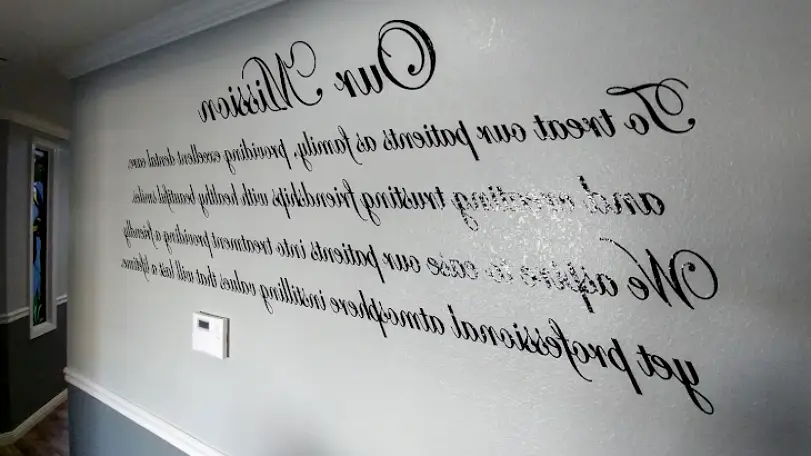 Our Mission
To treat our patients as family, providing excellent dental care,
and creating trusting friendships with healthy beautiful smiles.
We aspire to ease our patients into treatment providing a friendly
yet professional atmosphere instilling values that will last a lifetime.